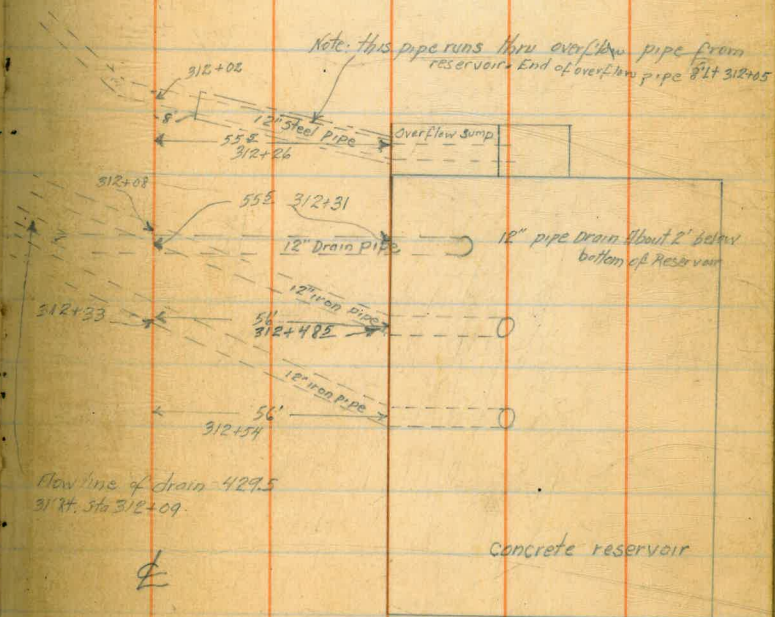 Note: this pipe runs thru overflow pipe from
reservoir. End of overflow pipe 8' Lt 312+05
312+02
8'
12" Steel pipe
Overflow Sump
55⁵
312+26
312+08
55⁵ 312+31
12" Drain pipe
12" pipe Drain About 2' below
bottom of Reservoir
12" iron pipe
312+33
56'
312+48⁵
12" iron pipe
56'
312+54
Flow line of drain 429.5
31' Rt. Sta 312+09
concrete reservoir
℄